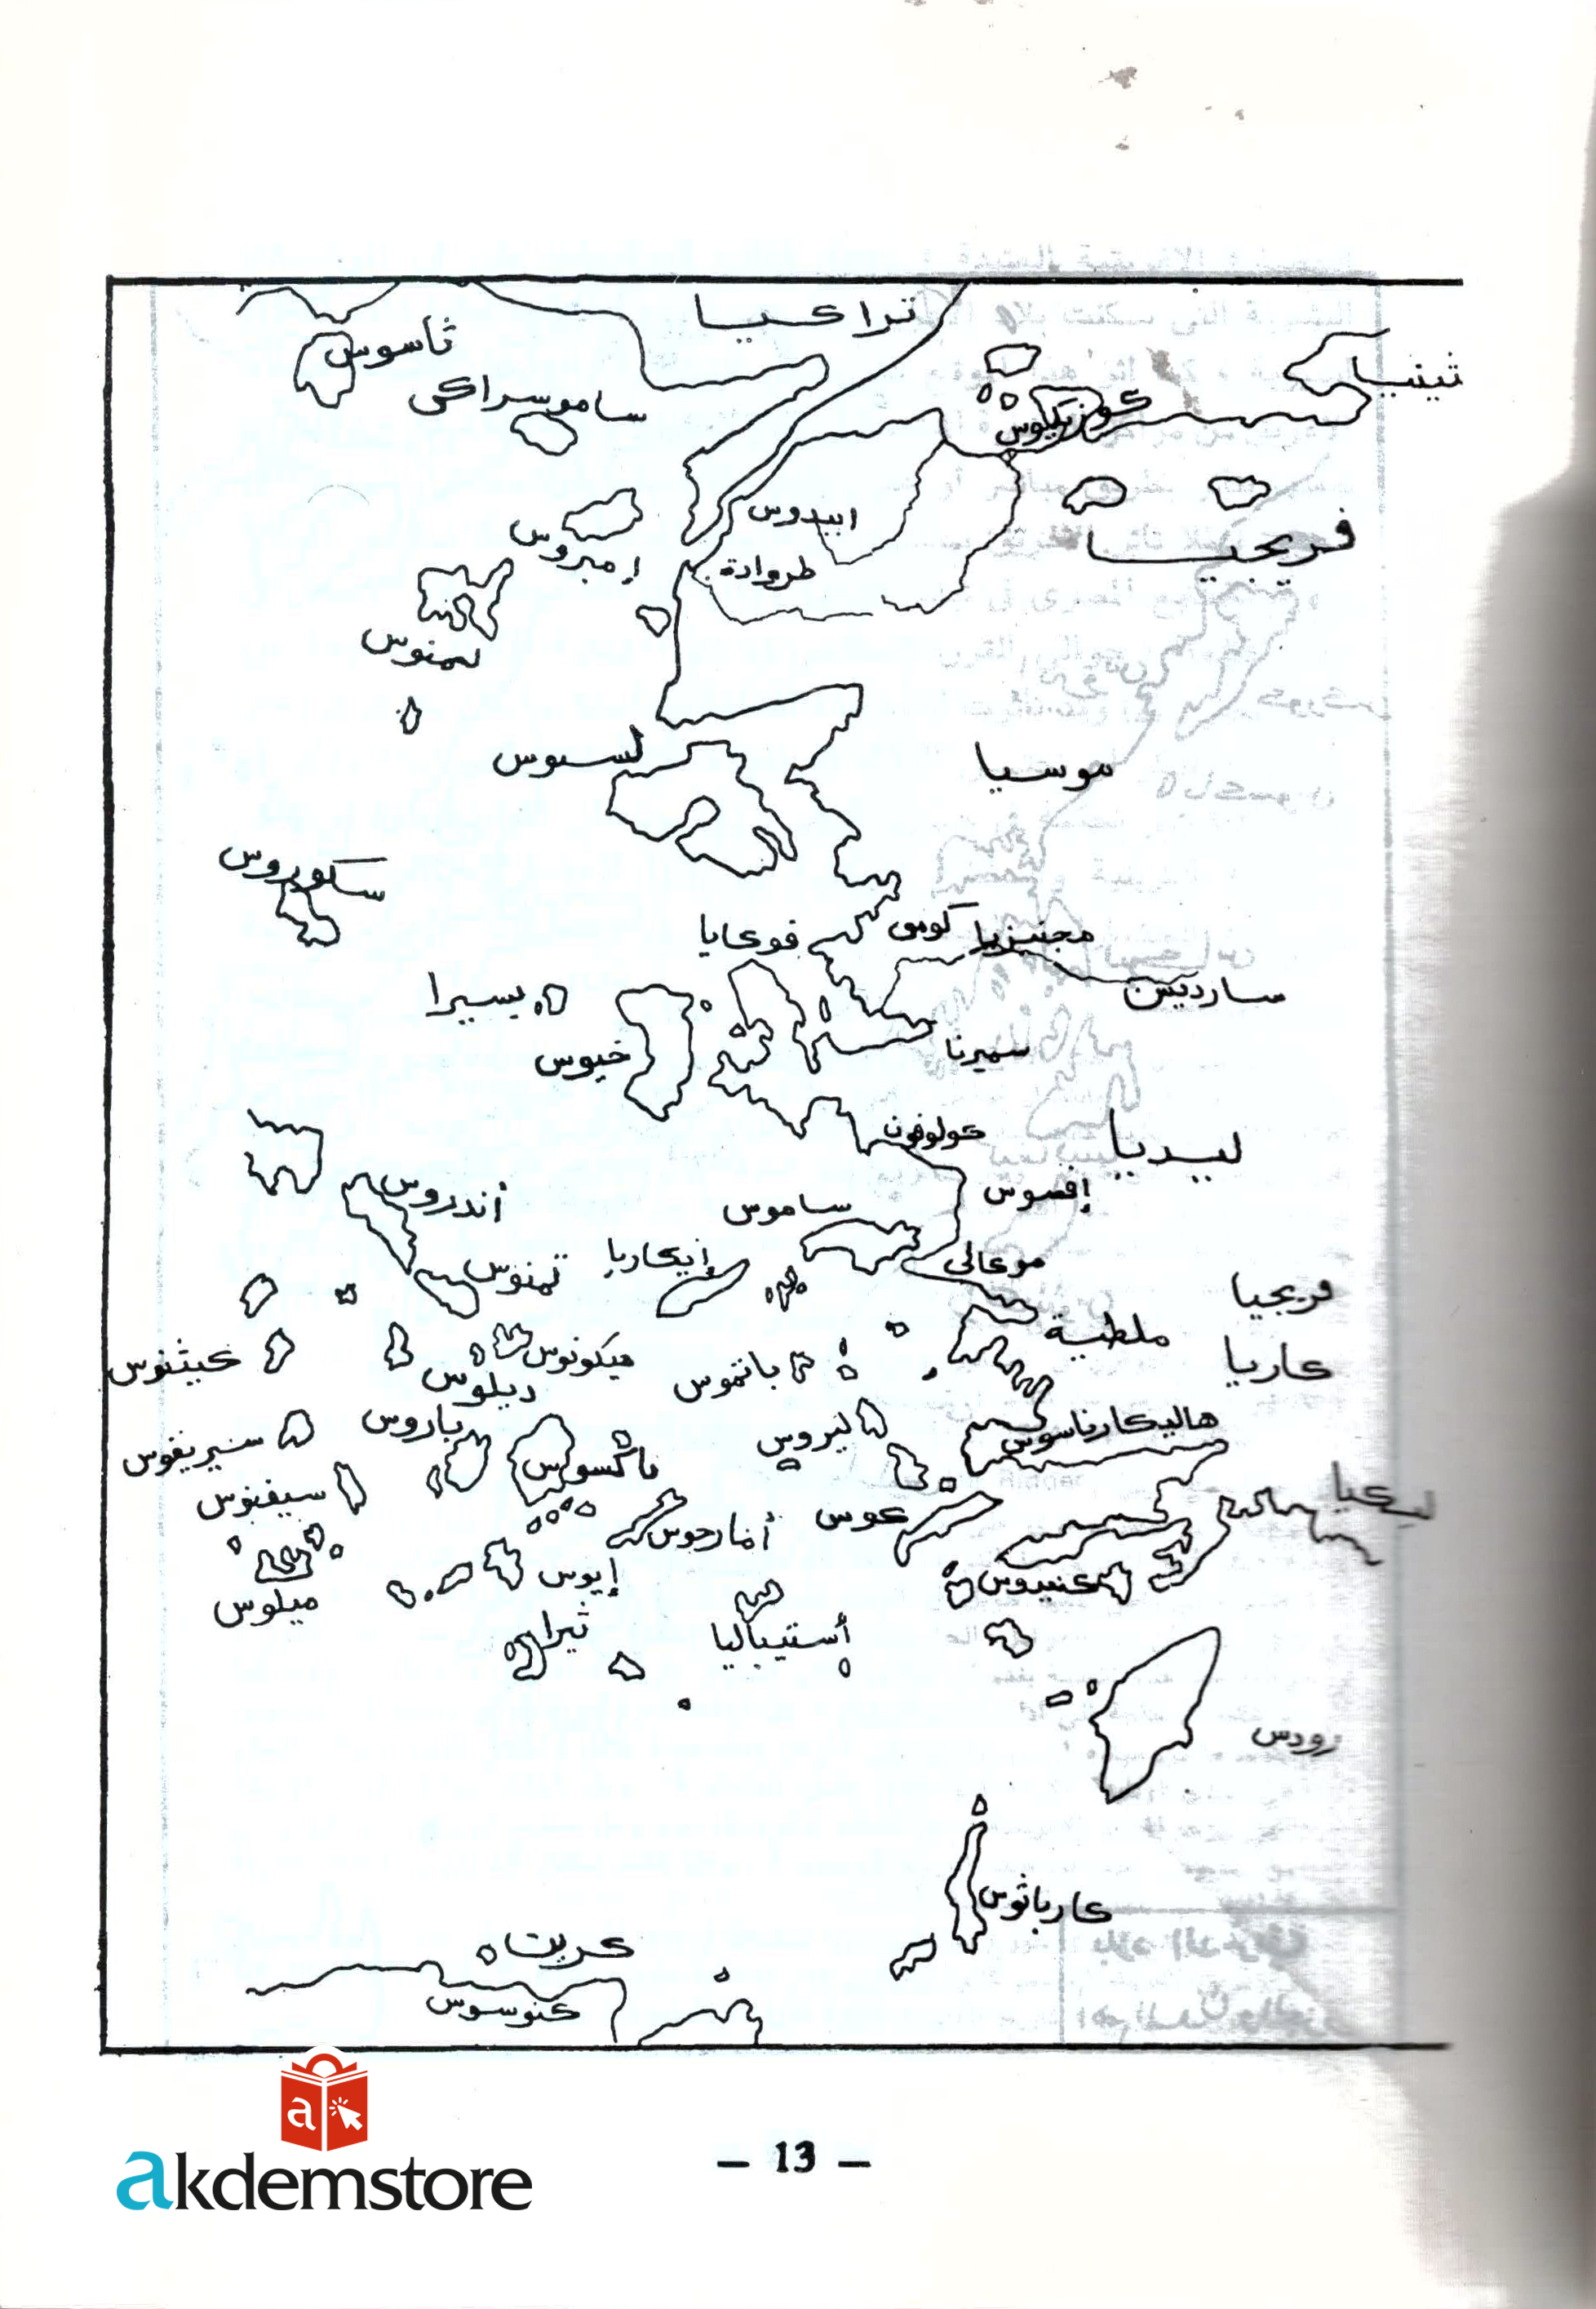 تراكيا
ثاسوس
تينيا
ساموسراكي
كوزيكوس
ابيدوس
إمبروس
فريجيا
طروادة
لمنوس
لسبوس
موسيا
سكوروس
فوكايا
كومي
مجنيزيا
بسيرا
سارديس
خيوس
سميرنا
كولوفون
ليديا
أندروس
ساموس
إفسوس
تمنوس
إيكاريا
موكالي
فريجيا
ملطية
كيثنوس
ميكونوس
باتموس
كاريا
ديلوس
باروس
ليروس
هاليكارناسوس
سيريفوس
ناكسوس
سيفنوس
كوس
ليكيا
أمارجوس
إيوس
كنيدوس
ميلوس
ثيرا
أستيباليا
رودس
كارباثوس
كريت
كنوسوس
a
akdemstore
– 13 –